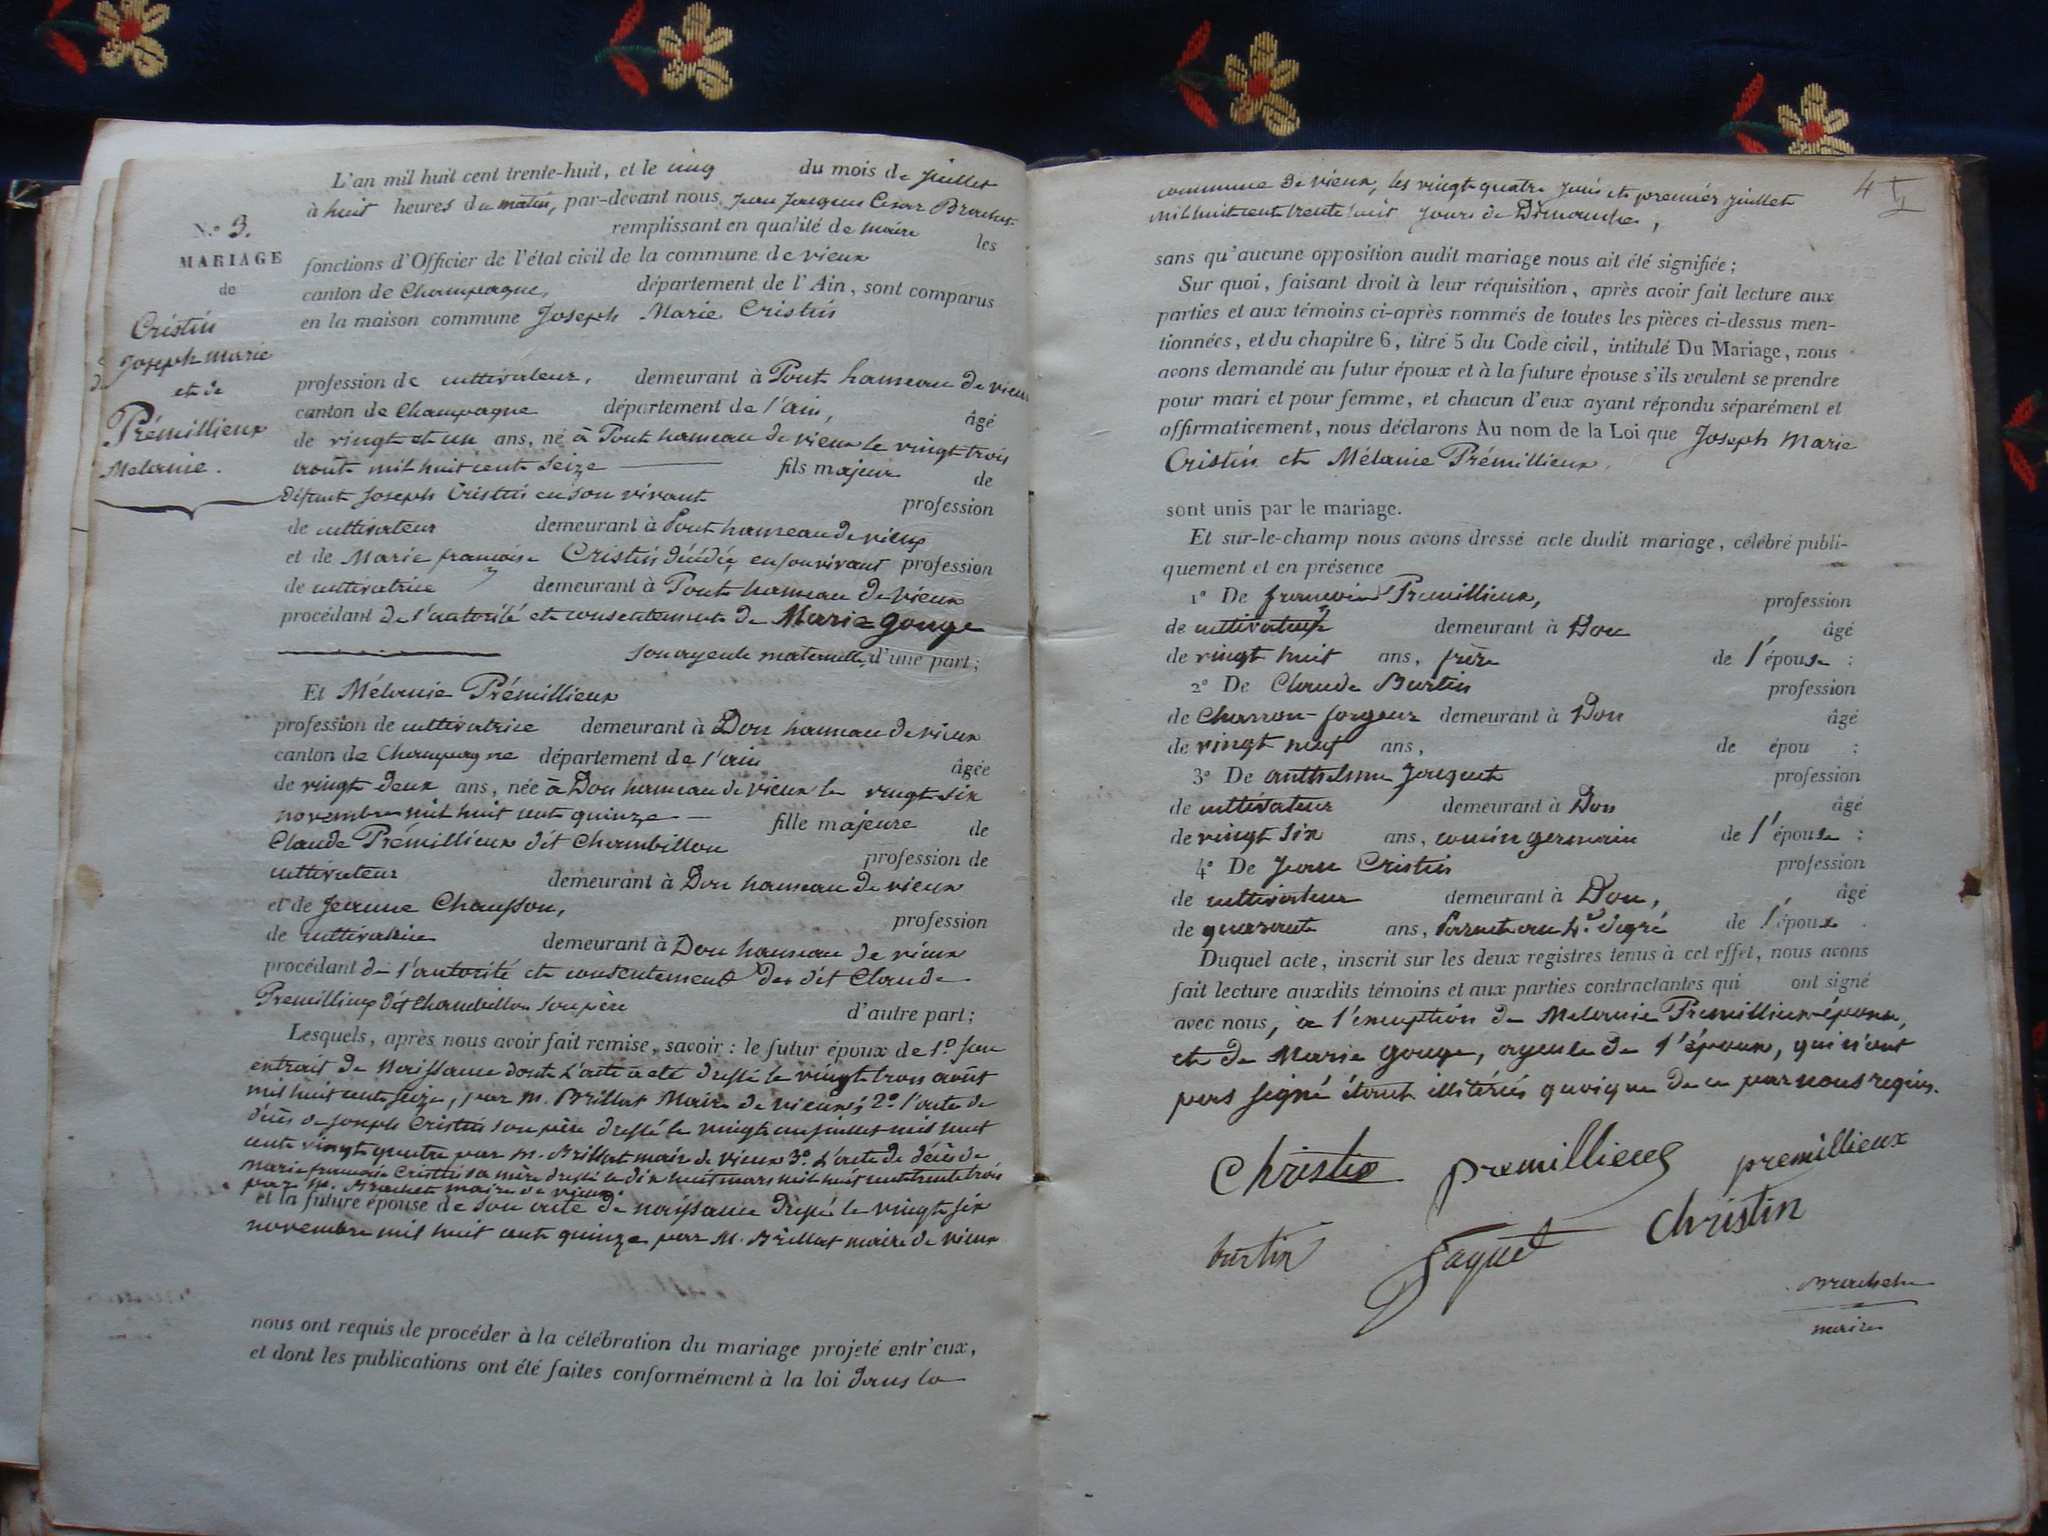 N.° 3.
MARIAGE
de
Cristin
Joseph Marie
et de
Prémillieux
Mélanie.
L'an mil huit cent trente-huit, et le cinq du mois de juillet
à huit heures du matin, par-devant nous, Jean Jacques César Brachet
remplissant en qualité de maire les
fonctions d'Officier de l'état civil de la commune de vieux
canton de Champagne, département de l'Ain, sont comparus
en la maison commune Joseph Marie Cristin
profession de cultivateur, demeurant à Pont hameau de vieux
canton de Champagne département de l'ain, âgé
de vingt et un ans, né à Pont hameau de vieux le vingt trois
août mil huit cent seize fils majeur de
défunt Joseph Cristin en son vivant profession
de cultivateur demeurant à Pont hameau de vieux
et de Marie françoise Cristin décédée, en son vivant profession
de cultivatrice demeurant à Pont hameau de vieux
procédant de l'autorité et consentement de Marie gouge
son ayeule maternelle, d'une part;
Et Mélanie Prémillieux
profession de cultivatrice demeurant à Don hameau de vieux
canton de Champagne département de l'ain âgée
de vingt deux ans, née à Don hameau de vieux le vingt six
novembre mil huit cent quinze fille majeure de
Claude Prémillieux dit Chambillon profession de
cultivateur demeurant à Don hameau de vieux
et de Jeanne Chausson, profession
de cultivatrice demeurant à Don hameau de vieux
procédant de l'autorité et consentement du dit Claude
Premillieux dit Chambillon son père d'autre part;
Lesquels, après nous avoir fait remise, savoir: le futur époux de 1.° son
extrait de Naissance dont l'acte a été dressé le vingt trois août
mil huit cent seize, par M. Brillat Maire de vieux; 2.° l'acte de
décès de Joseph Cristin son père dressé le vingt un juillet mil huit
cent vingt quatre par M. Brillat maire de vieux 3.° L'acte de décès de
Marie françoise Cristin sa mère dressé le dix huit mars mil huit cent trente trois
par M. Brachet maire de vieux.
et la future épouse de son acte de naissance dressé le vingt six
novembre mil huit cent quinze par M. Brillat maire de vieux
nous ont requis de procéder à la célébration du mariage projeté entr'eux,
et dont les publications ont été faites conformément à la loi dans la
4
commune de vieux, les vingt quatre juin et premier juillet
mil huit cent trente huit jours de Dimanche,
sans qu'aucune opposition audit mariage nous ait été signifiée;
Sur quoi, faisant droit à leur réquisition, après avoir fait lecture aux
parties et aux témoins ci-après nommés de toutes les pièces ci-dessus men-
tionnées, et du chapitre 6, titre 5 du Code civil, intitulé Du Mariage, nous
avons demandé au futur époux et à la future épouse s'ils veulent se prendre
pour mari et pour femme, et chacun d'eux ayant répondu séparément et
affirmativement, nous déclarons Au nom de la Loi que Joseph Marie
Cristin et Mélanie Prémillieux,
sont unis par le mariage.
Et sur-le-champ nous avons dressé acte dudit mariage, célébré publi-
quement et en présence
1° De françois Premillieux, profession
de cultivateur demeurant à Don âgé
de vingt huit ans, frère de l'épouse;
2° De Claude Burtin profession
de Charron-forgeur demeurant à Don âgé
de vingt neuf ans, de épou ;
3° De anthelme Jacquet profession
de cultivateur demeurant à Don âgé
de vingt six ans, cousin germain de l'épouse;
4° De Jean Cristin profession
de cultivateur demeurant à Don, âgé
de quarante ans, Parent au 4.e degré de l'époux.
Duquel acte, inscrit sur les deux registres tenus à cet effet, nous avons
fait lecture auxdits témoins et aux parties contractantes qui ont signé
avec nous, à l'exception de Melanie Premillieux épouse,
et de Marie gouge, ayeule de l'époux, qui n'ont
pas signé étant illitérées quoique de ce par nous requis.
Christin premillieux premillieux
burtin Jaquet Christin
Brachet
maire